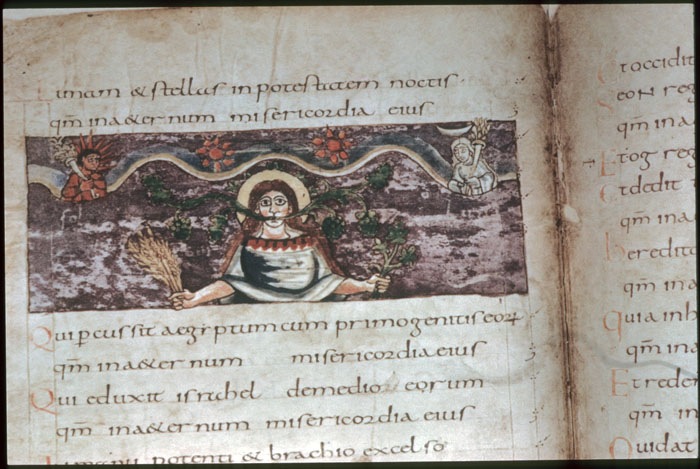 Lunam & stellas in potestatem noctis
qm̄ in a&ernum misericordia eius
Qui pcussit aegyptum cum primogenitis eorꝝ
qm̄ in a&ernum misericordia eius
Qui eduxit israhel demedio eorum
qm̄ in a&ernum misericordia eius
potenti & brachio excelso
&occidit
seon reg
qm̄ in a
Etog reg
Etdedit
qm̄ in a
heredita
qm̄ in a
Quia inh
qm̄ in a
Et redem
qm̄ in
Quidat